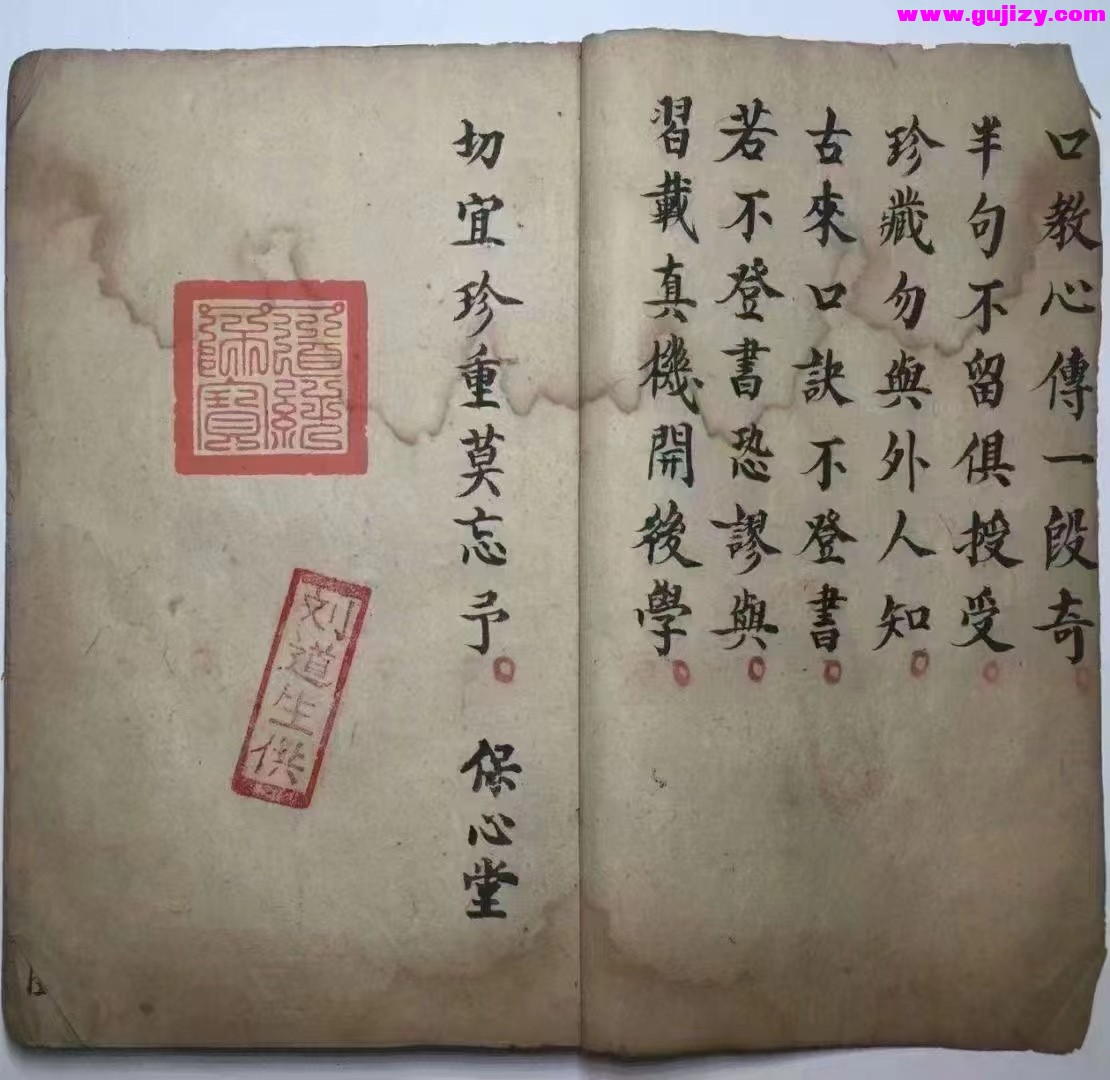 www.gujizy.com
口教心傳一段奇
半句不留俱授受
珍藏勿與外人知
古來口訣不登書
若不登書恐謬與
習載真機開後學
切宜珍重莫忘予 保心堂
道經師寶
刘道生供